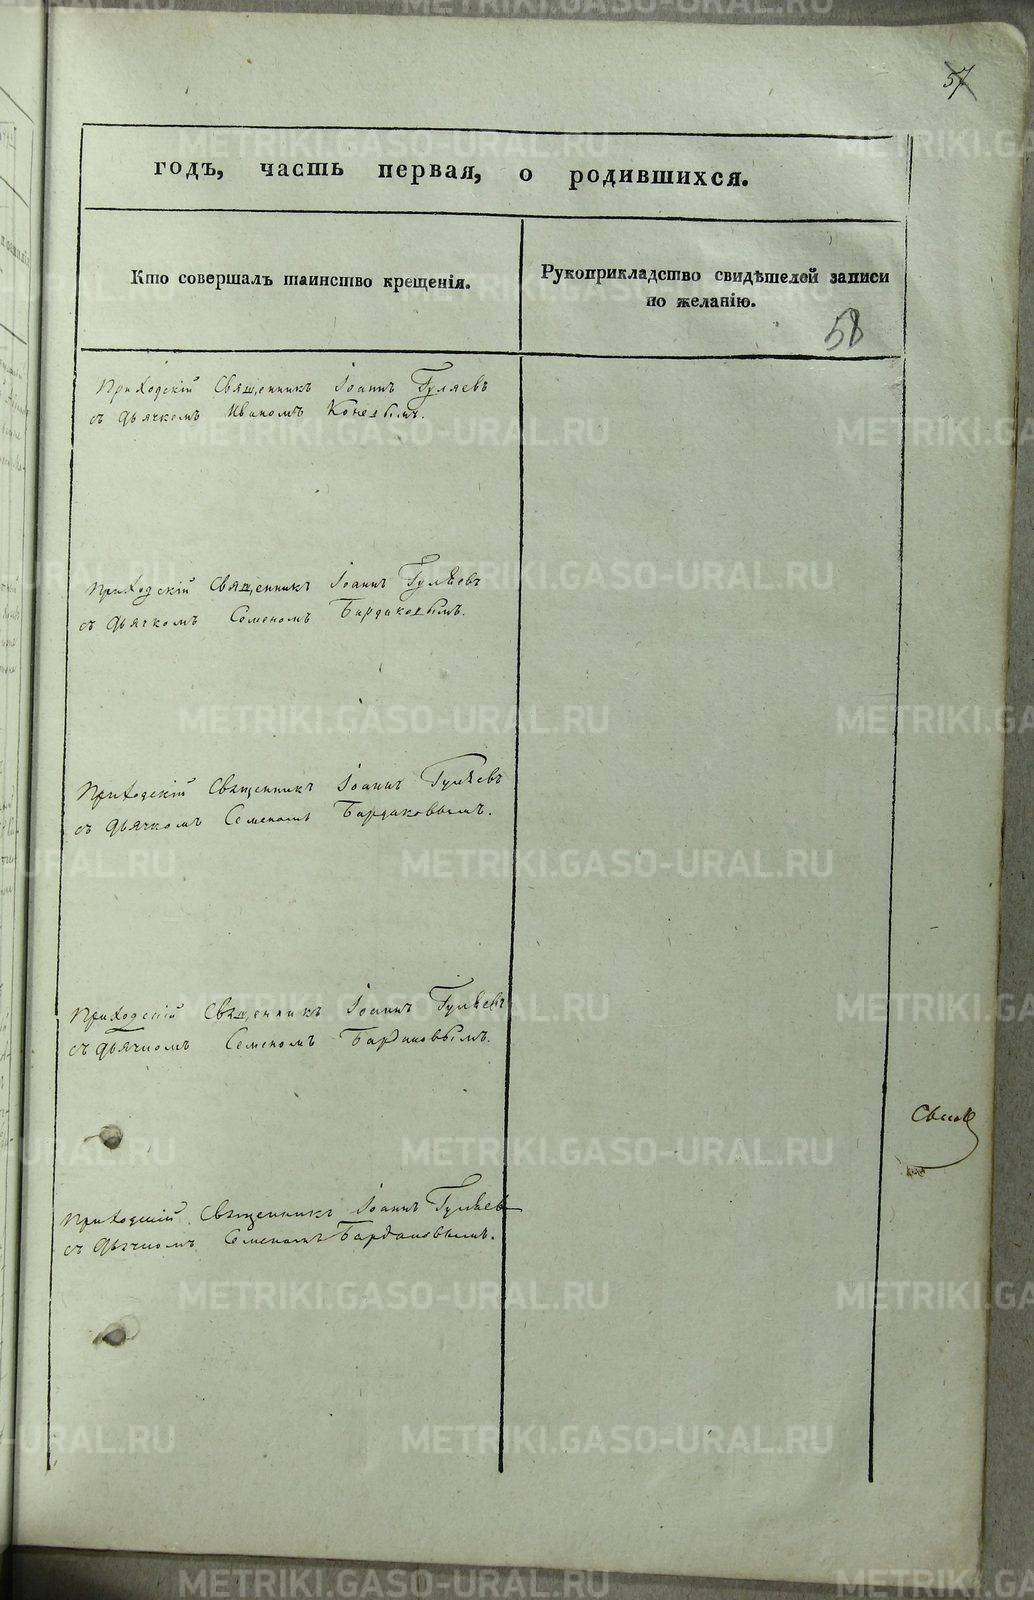 57
годъ, часть первая, о родившихся.
Кто совершалъ таинство крещенія.
Рукоприкладство свидѣтелей записи
по желанію.
58
Приходскій Священникъ Іоаннъ Гуляевъ
съ дьячкомъ Иваномъ Коневымъ.
Приходскій Священникъ Іоаннъ Гуляевъ
съ дьячкомъ Семеномъ Бардаковымъ.
Приходскій Священникъ Іоаннъ Гуляевъ
съ дьячкомъ Семеномъ Бардаковымъ.
Приходскій Священникъ Іоаннъ Гуляевъ
съ дьячкомъ Семеномъ Бардаковымъ.
Приходскій Священникъ Іоаннъ Гуляевъ
съ дьячкомъ Семеномъ Бардаковымъ.
METRIKI.GASO-URAL.RU